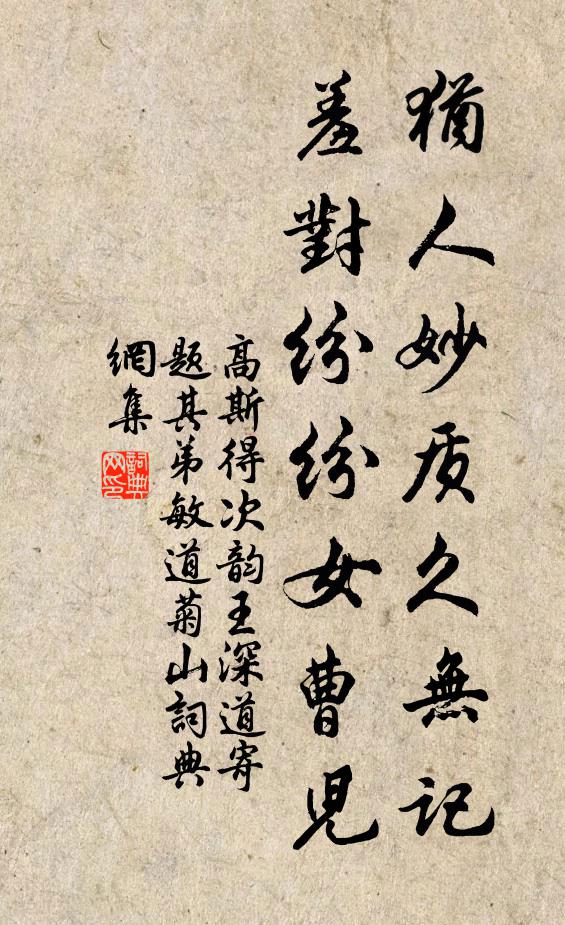 猶人妙质久無記
羞對紛紛女曹児
高斯得次韵王深道寄
题其弟敏道菊山詞典
網集
詞典
网印